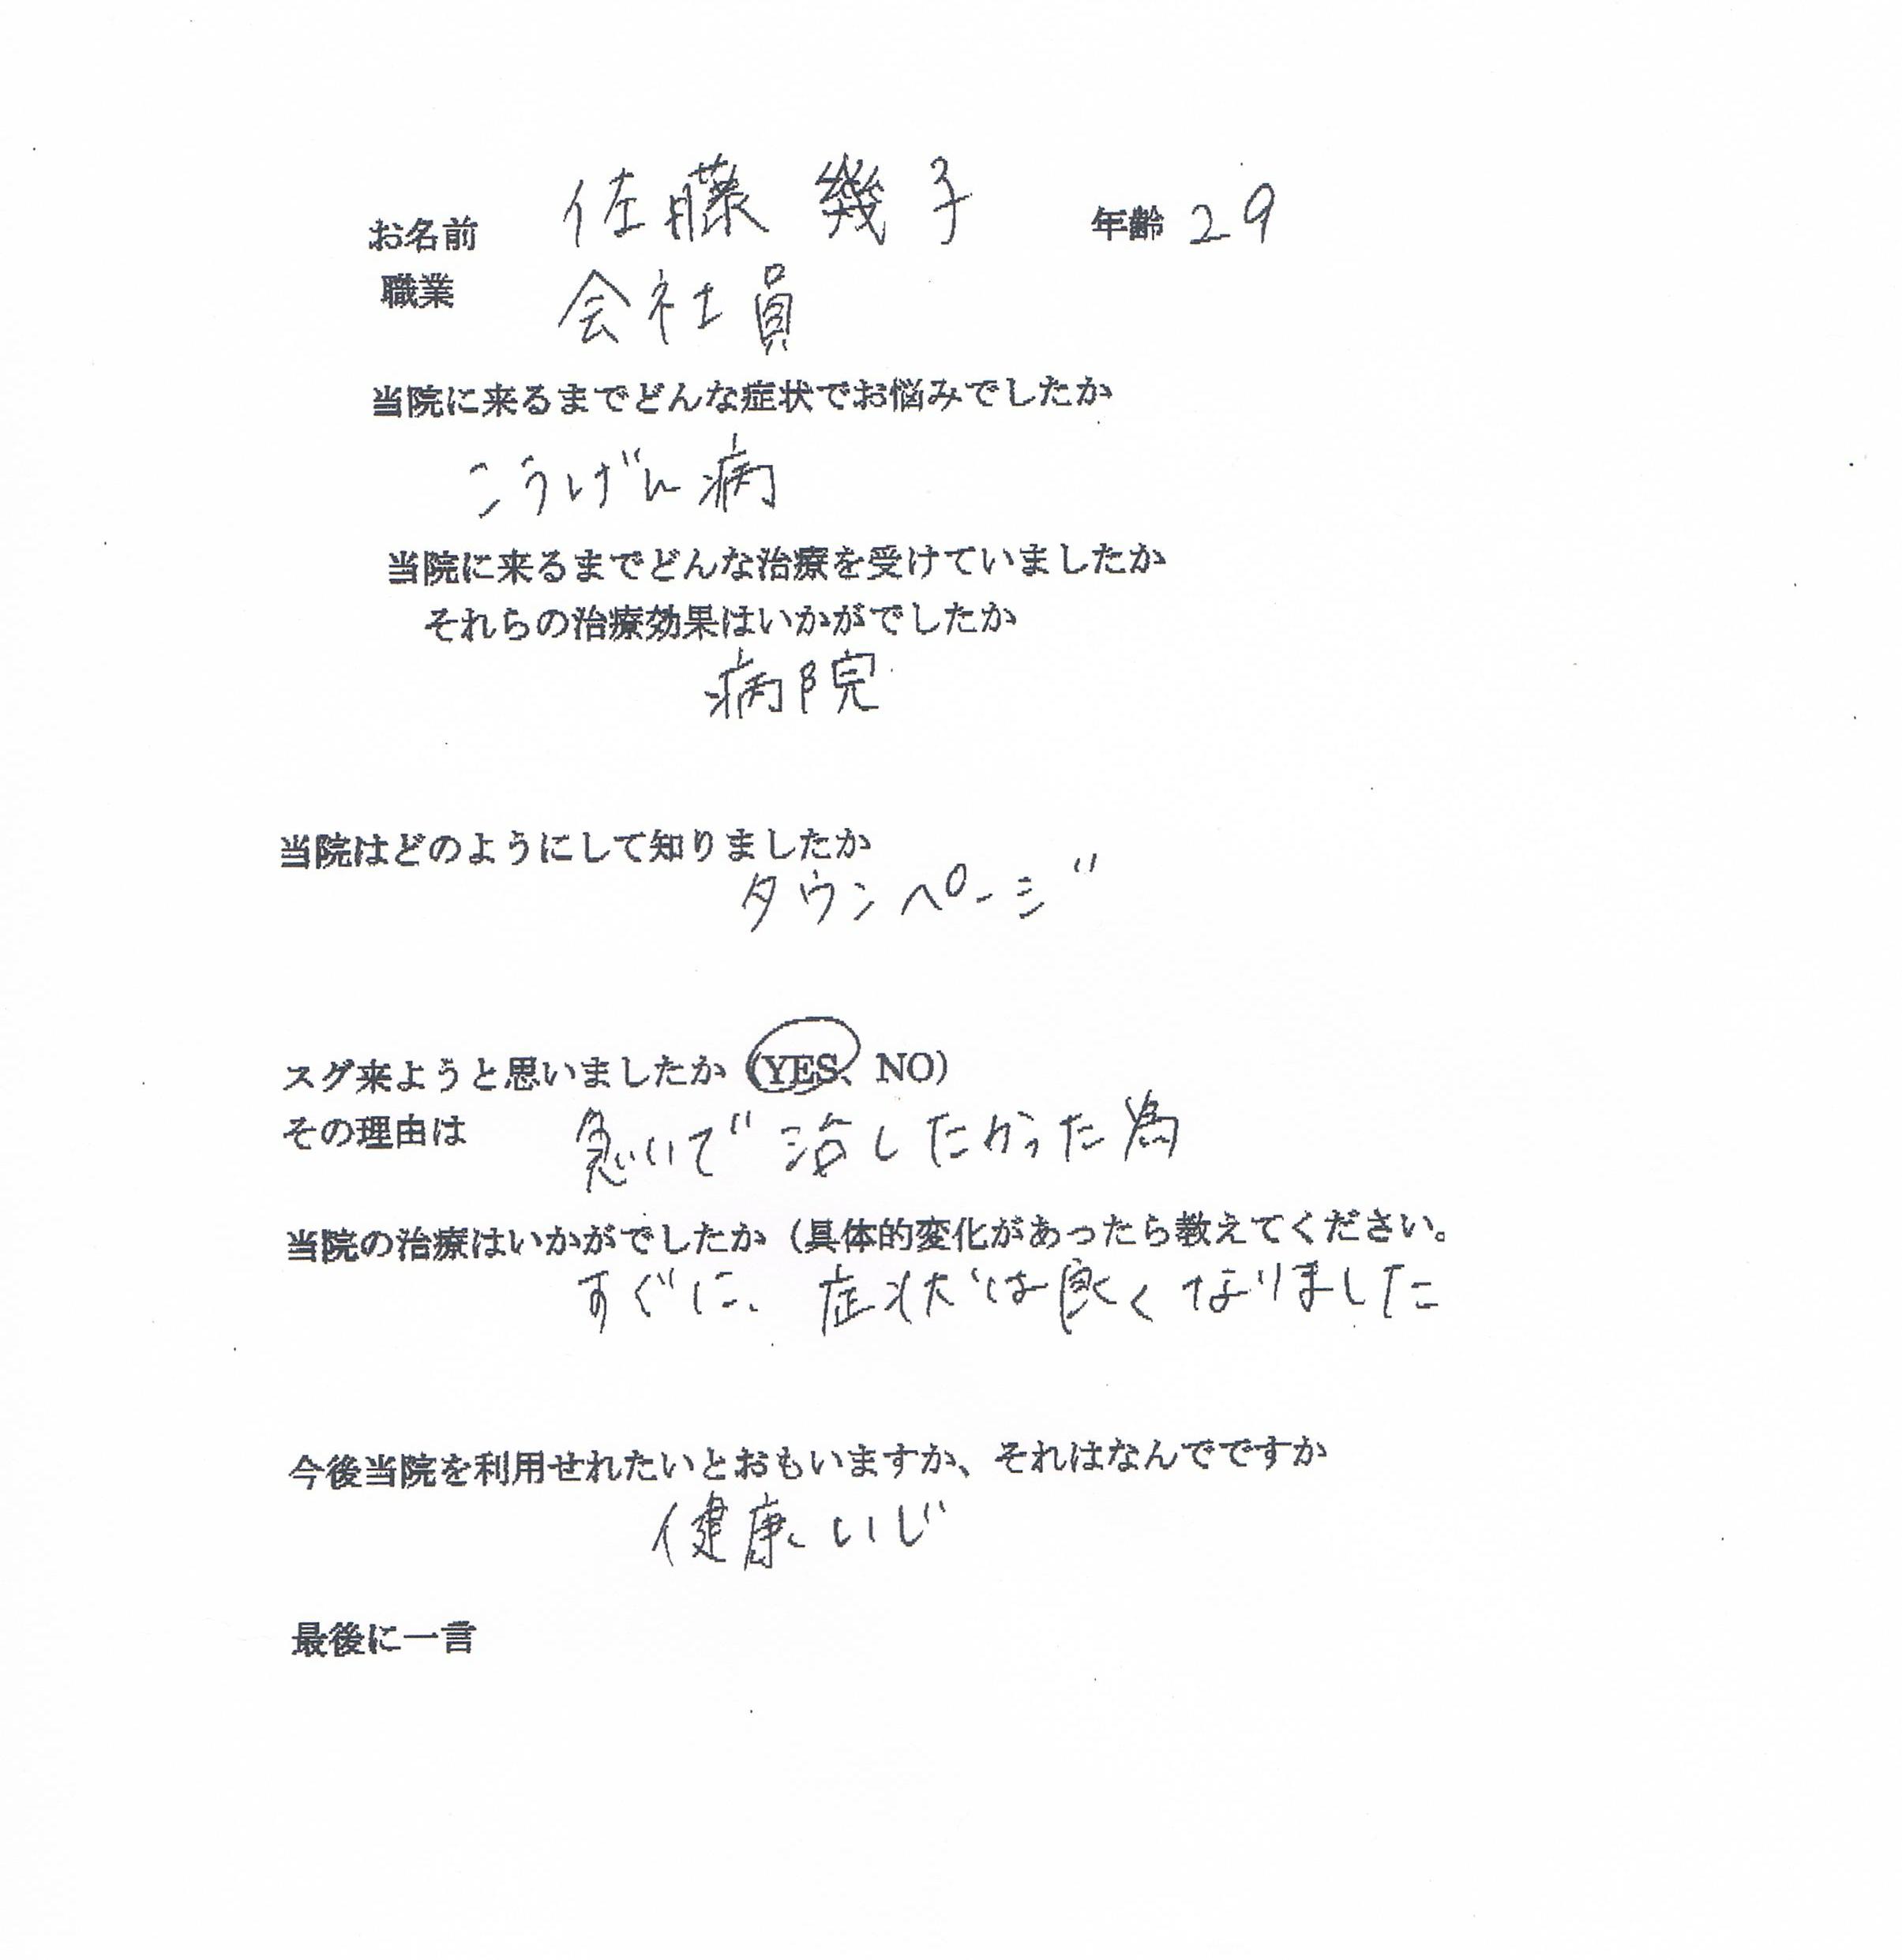 お名前 佐藤 幾子 年齢 29
職業 会社員
当院に来るまでどんな症状でお悩みでしたか
こうげん病
当院に来るまでどんな治療を受けていましたか
それらの治療効果はいかがでしたか
病院
当院はどのようにして知りましたか
タウンページ
スグ来ようと思いましたか（YES、NO）
その理由は 急いで治したかった為
当院の治療はいかがでしたか（具体的変化があったら教えてください。
すぐに、症状は良くなりました
今後当院を利用せれたいとおもいますか、それはなんでですか
健康いじ
最後に一言